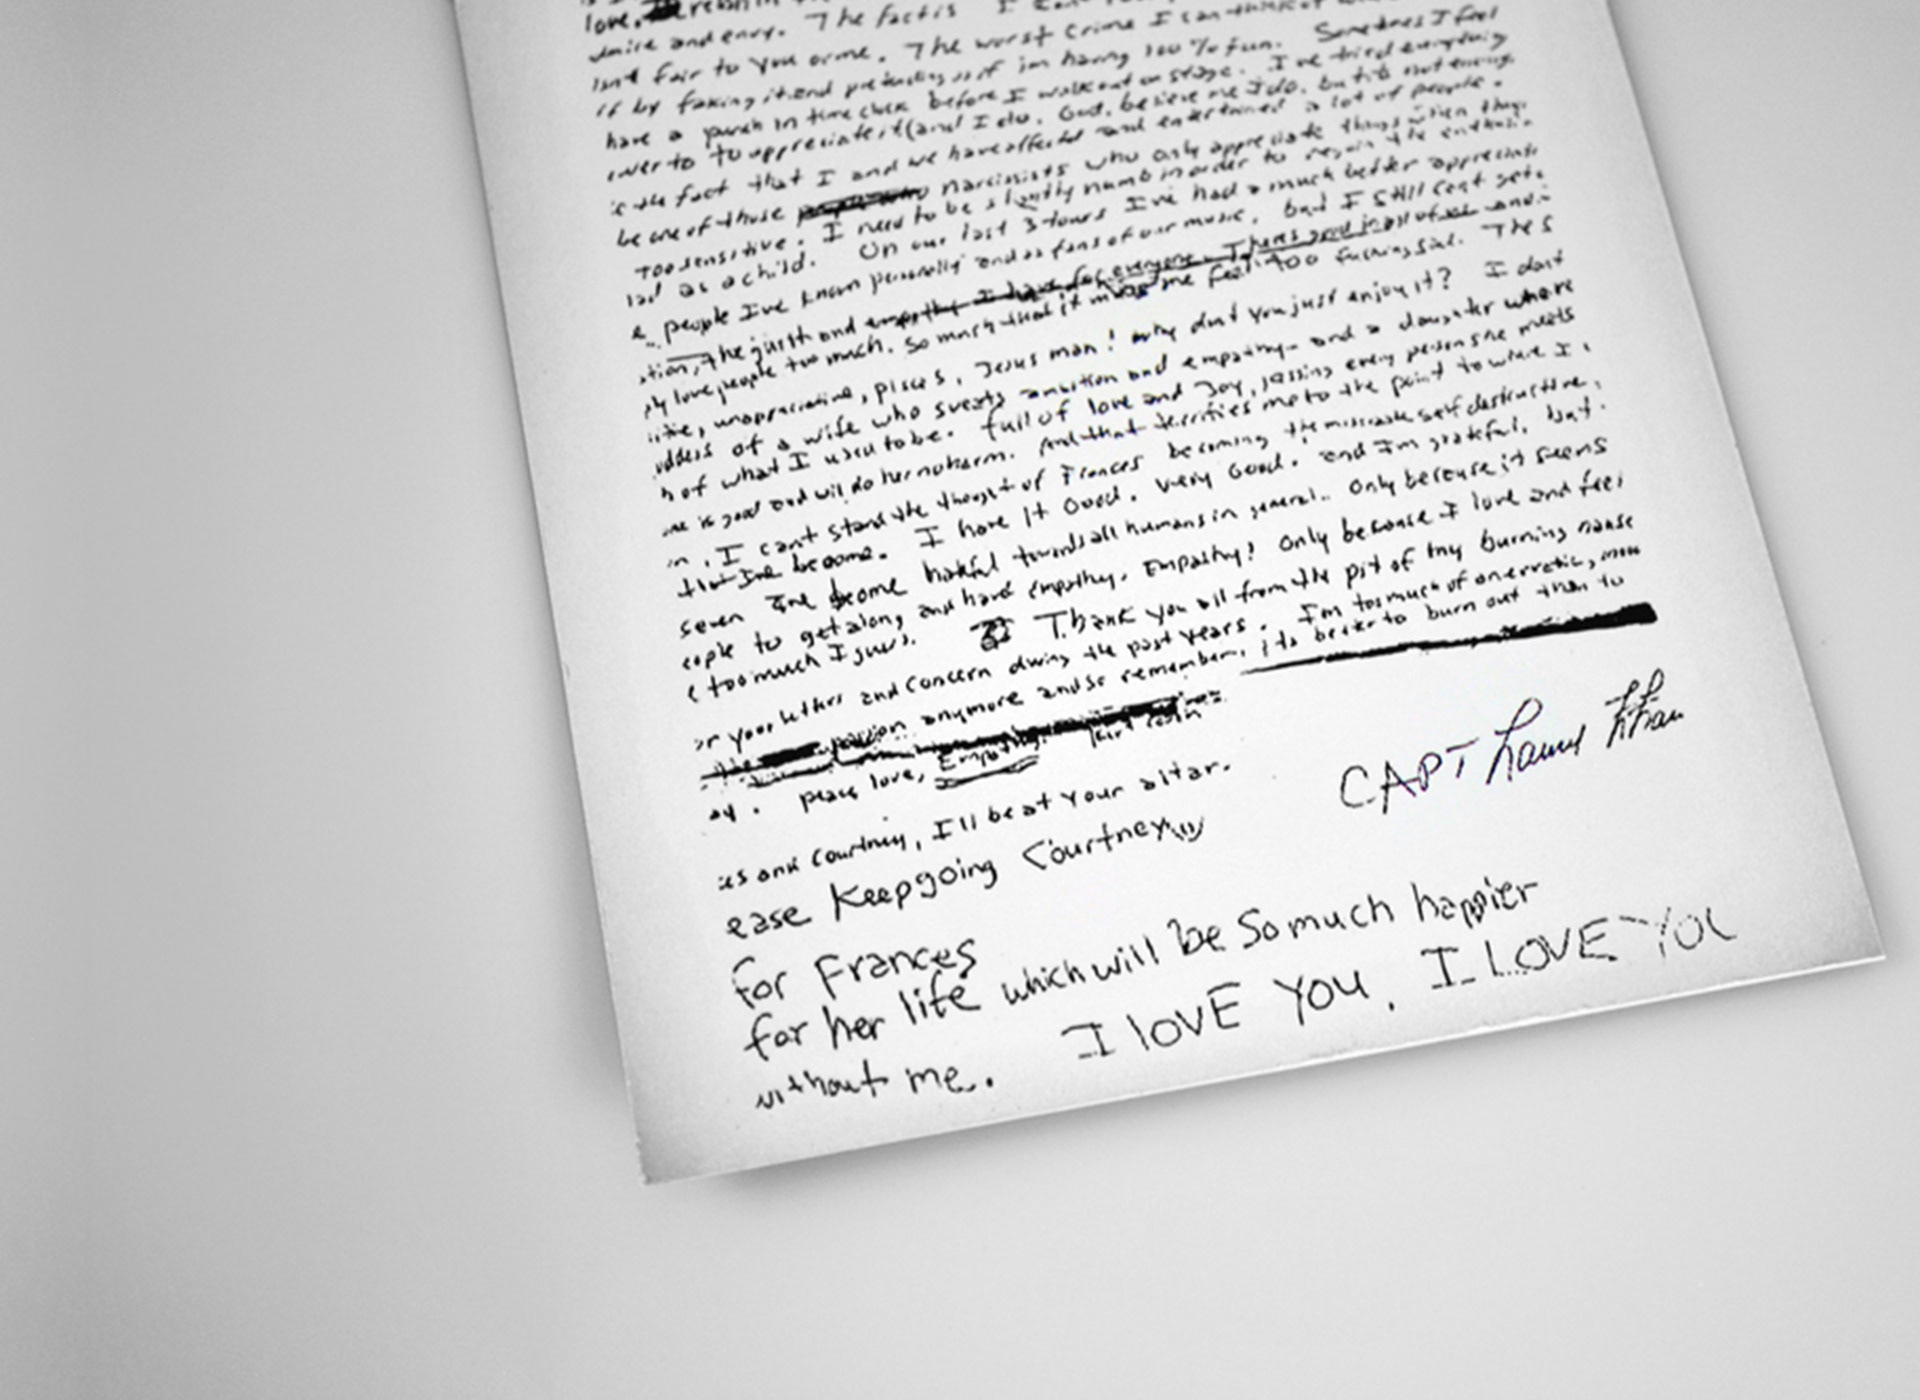 love,
admire and envy. The fact is I can't
isn't fair to you or me. The worst crime I can think of
if by faking it and pretending as if im having 100% fun. Sometimes I feel
have a punch in time clock before I walk out on stage. I've tried everything
ower to to appreciate it (and I do. God, believe me I do. but it's not enough.
e the fact that I and we have affected and entertained a lot of people.
be one of those narcissists who only appreciate things when they
Too sensitive. I need to be slightly numb in order to regain the enthusia
had as a child. On our last 3 tours I've had a much better appreciati
e people I've known personally and as fans of our music, but I still cant get
tion, the guilt and empathy I have for everyone. Theres good in all of us and
ply love people too much. So much that it makes me feel too fucking sad. The s
itive, unappreciative, pisces, Jesus man! why dont you just enjoy it? I dont
oddess of a wife who sweats ambition and empathy. and a daughter who re
h of what I used to be. full of love and Joy, kissing every person she meets
one is good and will do her no harm. And that terrifies me to the point to where I
n. I cant stand the thought of Frances becoming the miserable self destructive,
that Ive become. I have it Good. very Good. and I'm grateful, but
seven Ive become hateful towards all humans in general. Only because it seems
eople to get along and have empathy. Empathy! Only because I love and feel
e too much I guess. Thank you all from the pit of my burning nause
or your letters and concern during the past years. I'm too much of an erratic, moo
The passion anymore and so remember, its better to burn out than to
ay. peace love, Empathy. Kurt Cobain
es and Courtney, I'll be at your altar.
CAPT
ease Keep going Courtney
for Frances
for her life which will be So much happier
without me. I LOVE YOU. I LOVE YOU